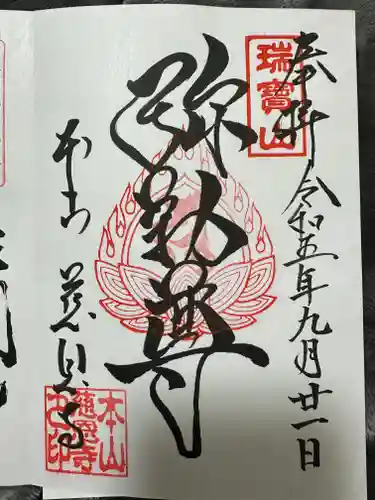 奉拝
令和五年九月廿一日
瑞寶山
弥勒尊
本山
慈恩寺
本山
慈恩寺
之印